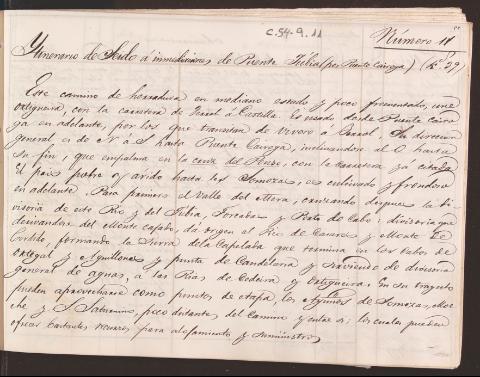 C.54-9.11
Número 11
Ytinerario de Seydo á inmediaciones de Puente Jubia (por Puente Carroza) (K. 29)
Este camino de herradura en mediano estado y poco frecuentado, une
Ortigueira, con la carretera de Ferrol á Castilla. Es usado desde Puente
en adelante, por los que transitan de Vivero á Ferrol. Su direccion
general es de N á S hasta Puente inclinandose al O hasta
su fin, que empalma en la cruz del con la carretera ya citada
El pais pobre y arido hasta los Somozas, es cultivado y frondoso
en adelante. Pasa primero el Valle del Mera, cruzando despues la di-
visoria de este Rio y del Jubia, Forcadas y Rio de Cabo: divisoria que
derivandose del monte cajado, da origen al Rio de y Monte
formando la Sierra de la Capelada que termina en los cabos de
Ortegal y Aguillones y punta de Candelaria y sirviendo de divisoria
general de aguas, a las Rias de Cedeira y Ortigueira. En su trayecto
pueden aprovecharse como puntos de etapa, los Ayuntos de Somozas, Moe-
che y S. Saturnino, poco distantes del Camino y entre si; los cuales pueden
ofrecer bastantes recursos para alojamiento y suministros